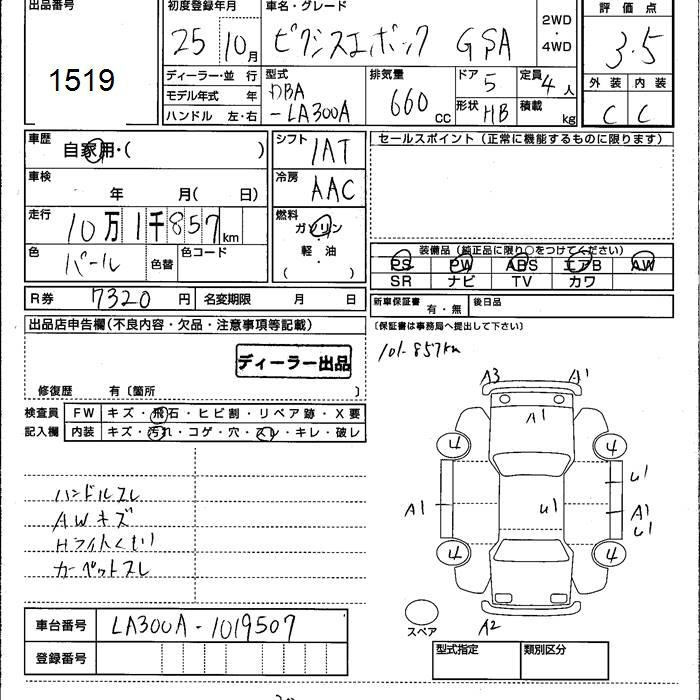 出品番号 初度登録年月 車名・グレード 2WD・4WD 評価点
1519 25 10月 ピクシスエポック GSA 3.5
ディーラー・並行 型式 排気量 ドア 定員 外装 内装
モデル年式 年 DBA 660 CC 5 4人 C C
ハンドル 左・右 -LA300A 形状 HB 積載 kg
車歴 シフト セールスポイント(正常に機能するものに限ります)
自家用・( ) IAT
車検 冷房
年 月( 日) AAC
走行 燃料
10万1千857km ガソリン
色 色替 色コード 軽・油 装備品(純正品に限り○をつけてください)
パール ( ) PS PW ABS エアB AW
SR ナビ TV カワ
R券 7320円 名変期限 月 日 新車保証書 有・無 後日品
出品店申告欄(不良内容・欠品・注意事項等記載) (保証書は事務局へ提出して下さい)
ディーラー出品 101-857km
修復歴 有〔箇所 〕 A3 A1
検査員 FW キズ・飛石・ヒビ割・リペア跡・X要 A1
記入欄 内装 キズ・汚れ・コゲ・穴・スレ・キレ・破レ 4 4
ハンドルスレ U1
AWキズ A1 U1 A1
Hライトくもり U1
カーペットスレ 4 4
車台番号 LA300A-1019507 スペア A2
登録番号 型式指定 類別区分